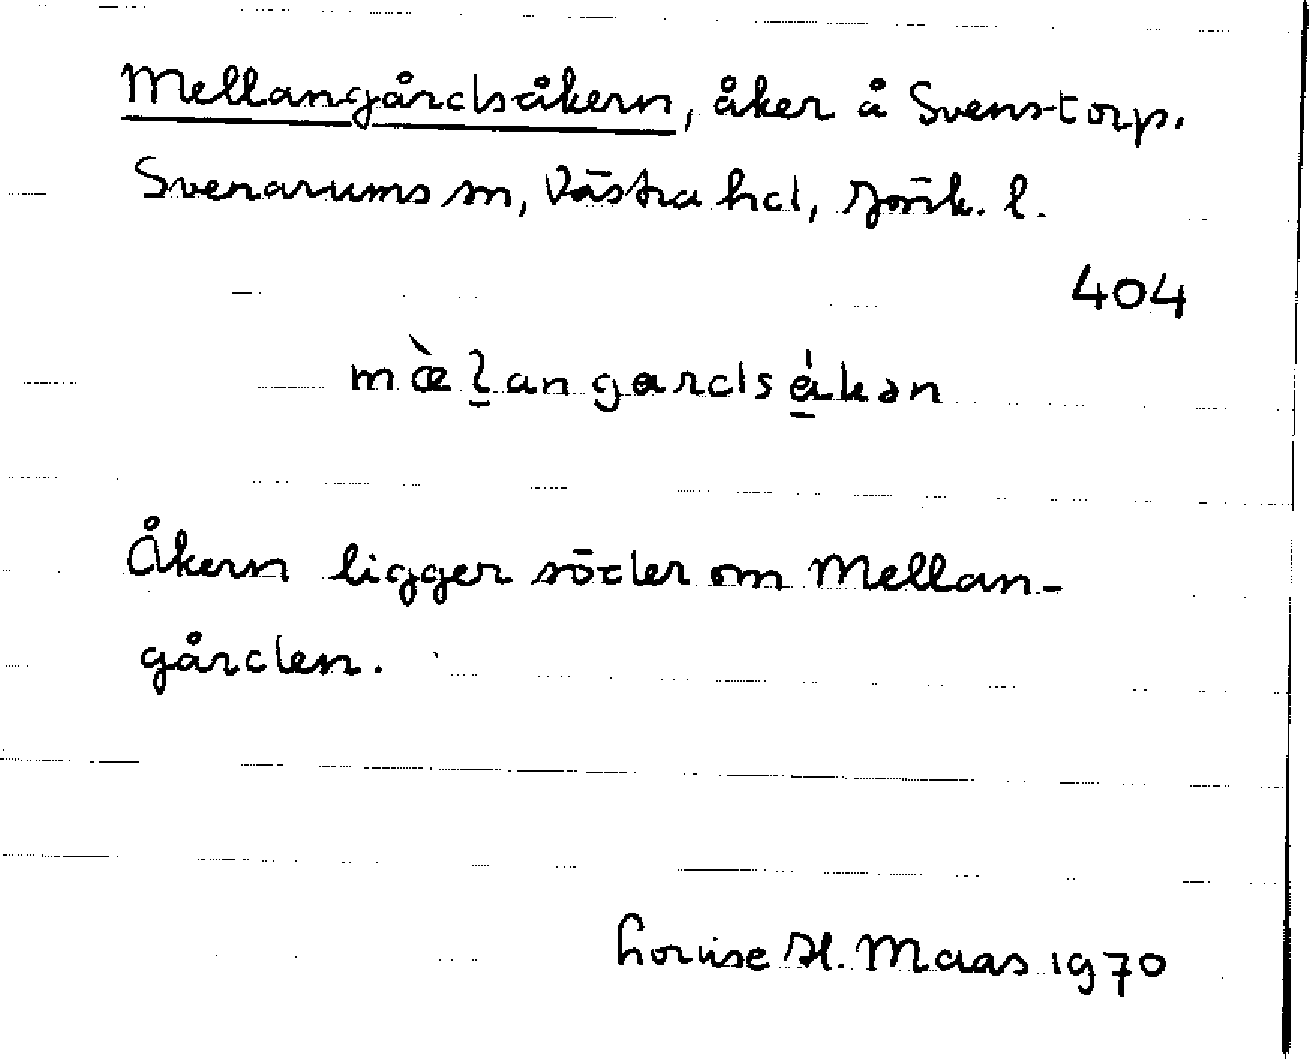 Mellangårdsåkern, åker å Svenstorp.
Svenarums sn, Västra hd, Jönk. l.
404
mæ̀l̲angardsǻ̲kən
Åkern ligger söder om Mellan-
gården.
Louise H. Maas 1970